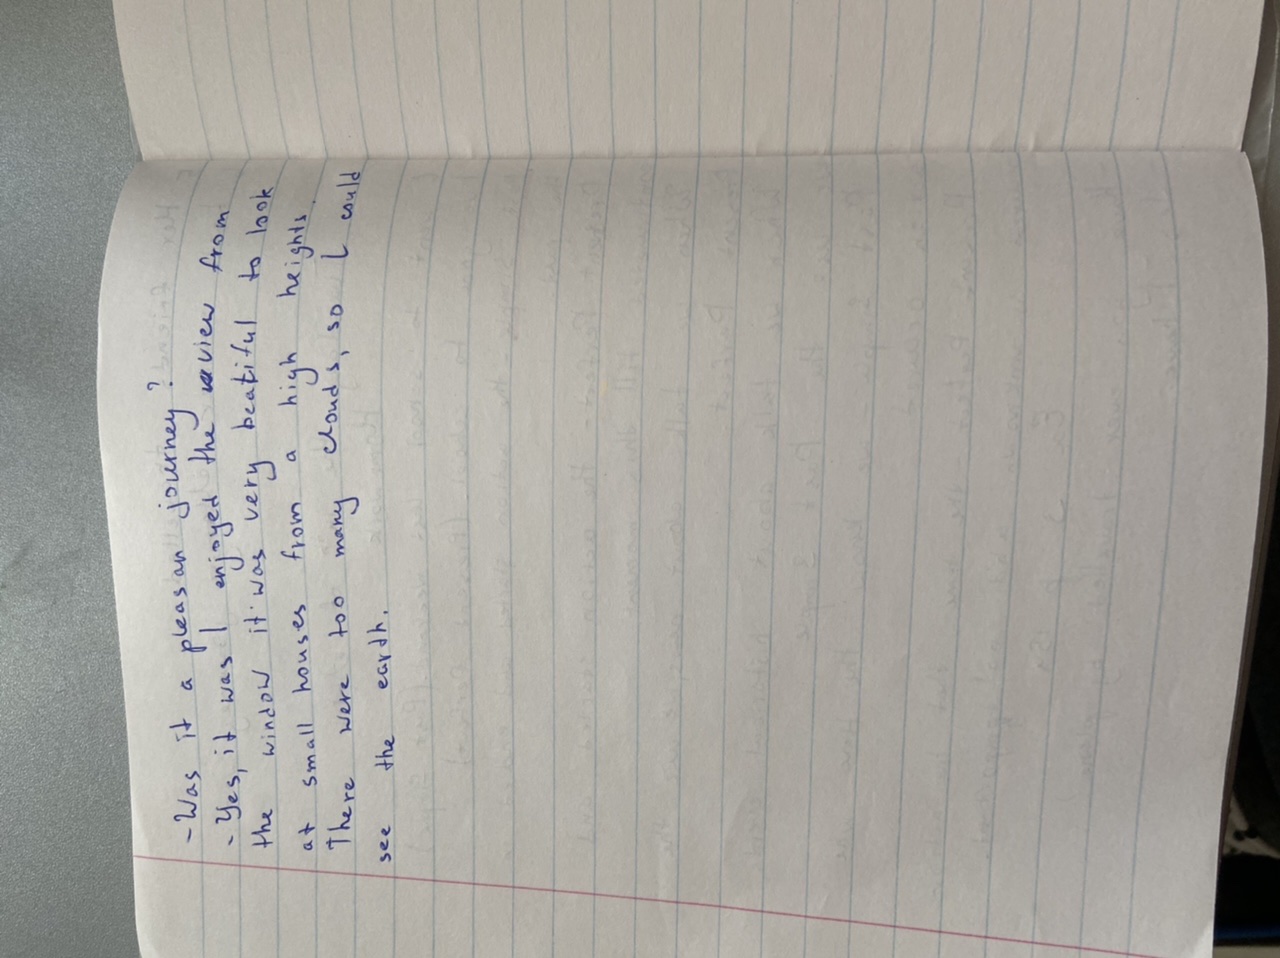 - Was it a pleasan journey?
- Yes, it was I enjoyed the view from
the window it was very beatiful to look
at small houses from a high heights.
There were too many clouds, so I could
see the earth.